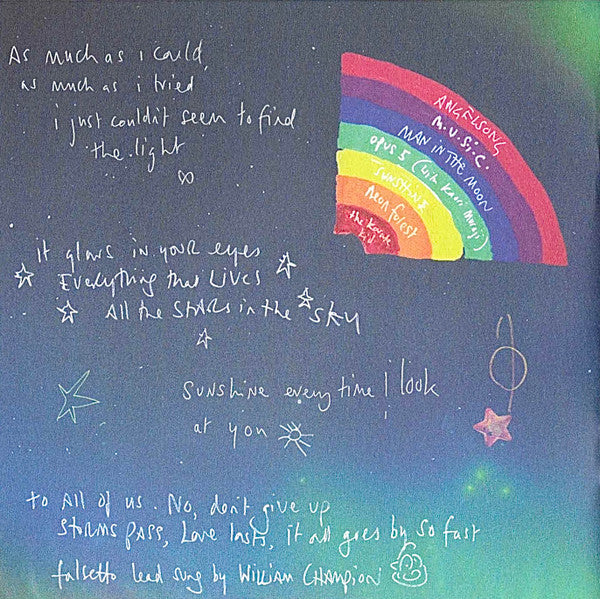 As much as i could,
as much as i tried
i just couldn't seem to find
the light
ANGELSONG
M.U.S.I.C.
MAN IN THE MOON
OPUS 5 (with Kaori Muraji)
SUNSHINE
Neon forest
the Karate
kid
it glows in your eyes
Everything that LIVES
All the STARS in the sky
sunshine every time I look
at you
to All of us. No, don't give up
STORMS PASS, Love lasts, it all goes by so fast
falsetto lead sung by WILLIAM CHAMPION